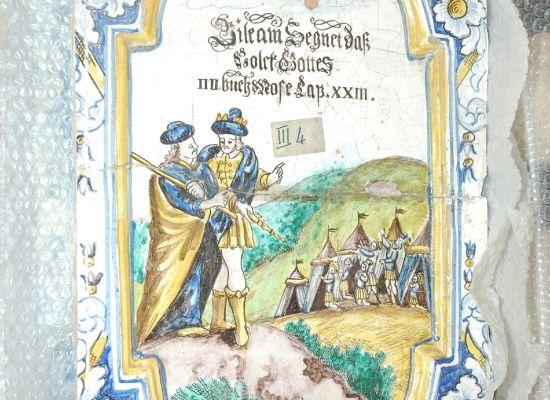 Bileam Segnet daß
Volck Gottes.
IIII. buch Mose Cap. XXIII.
III 4